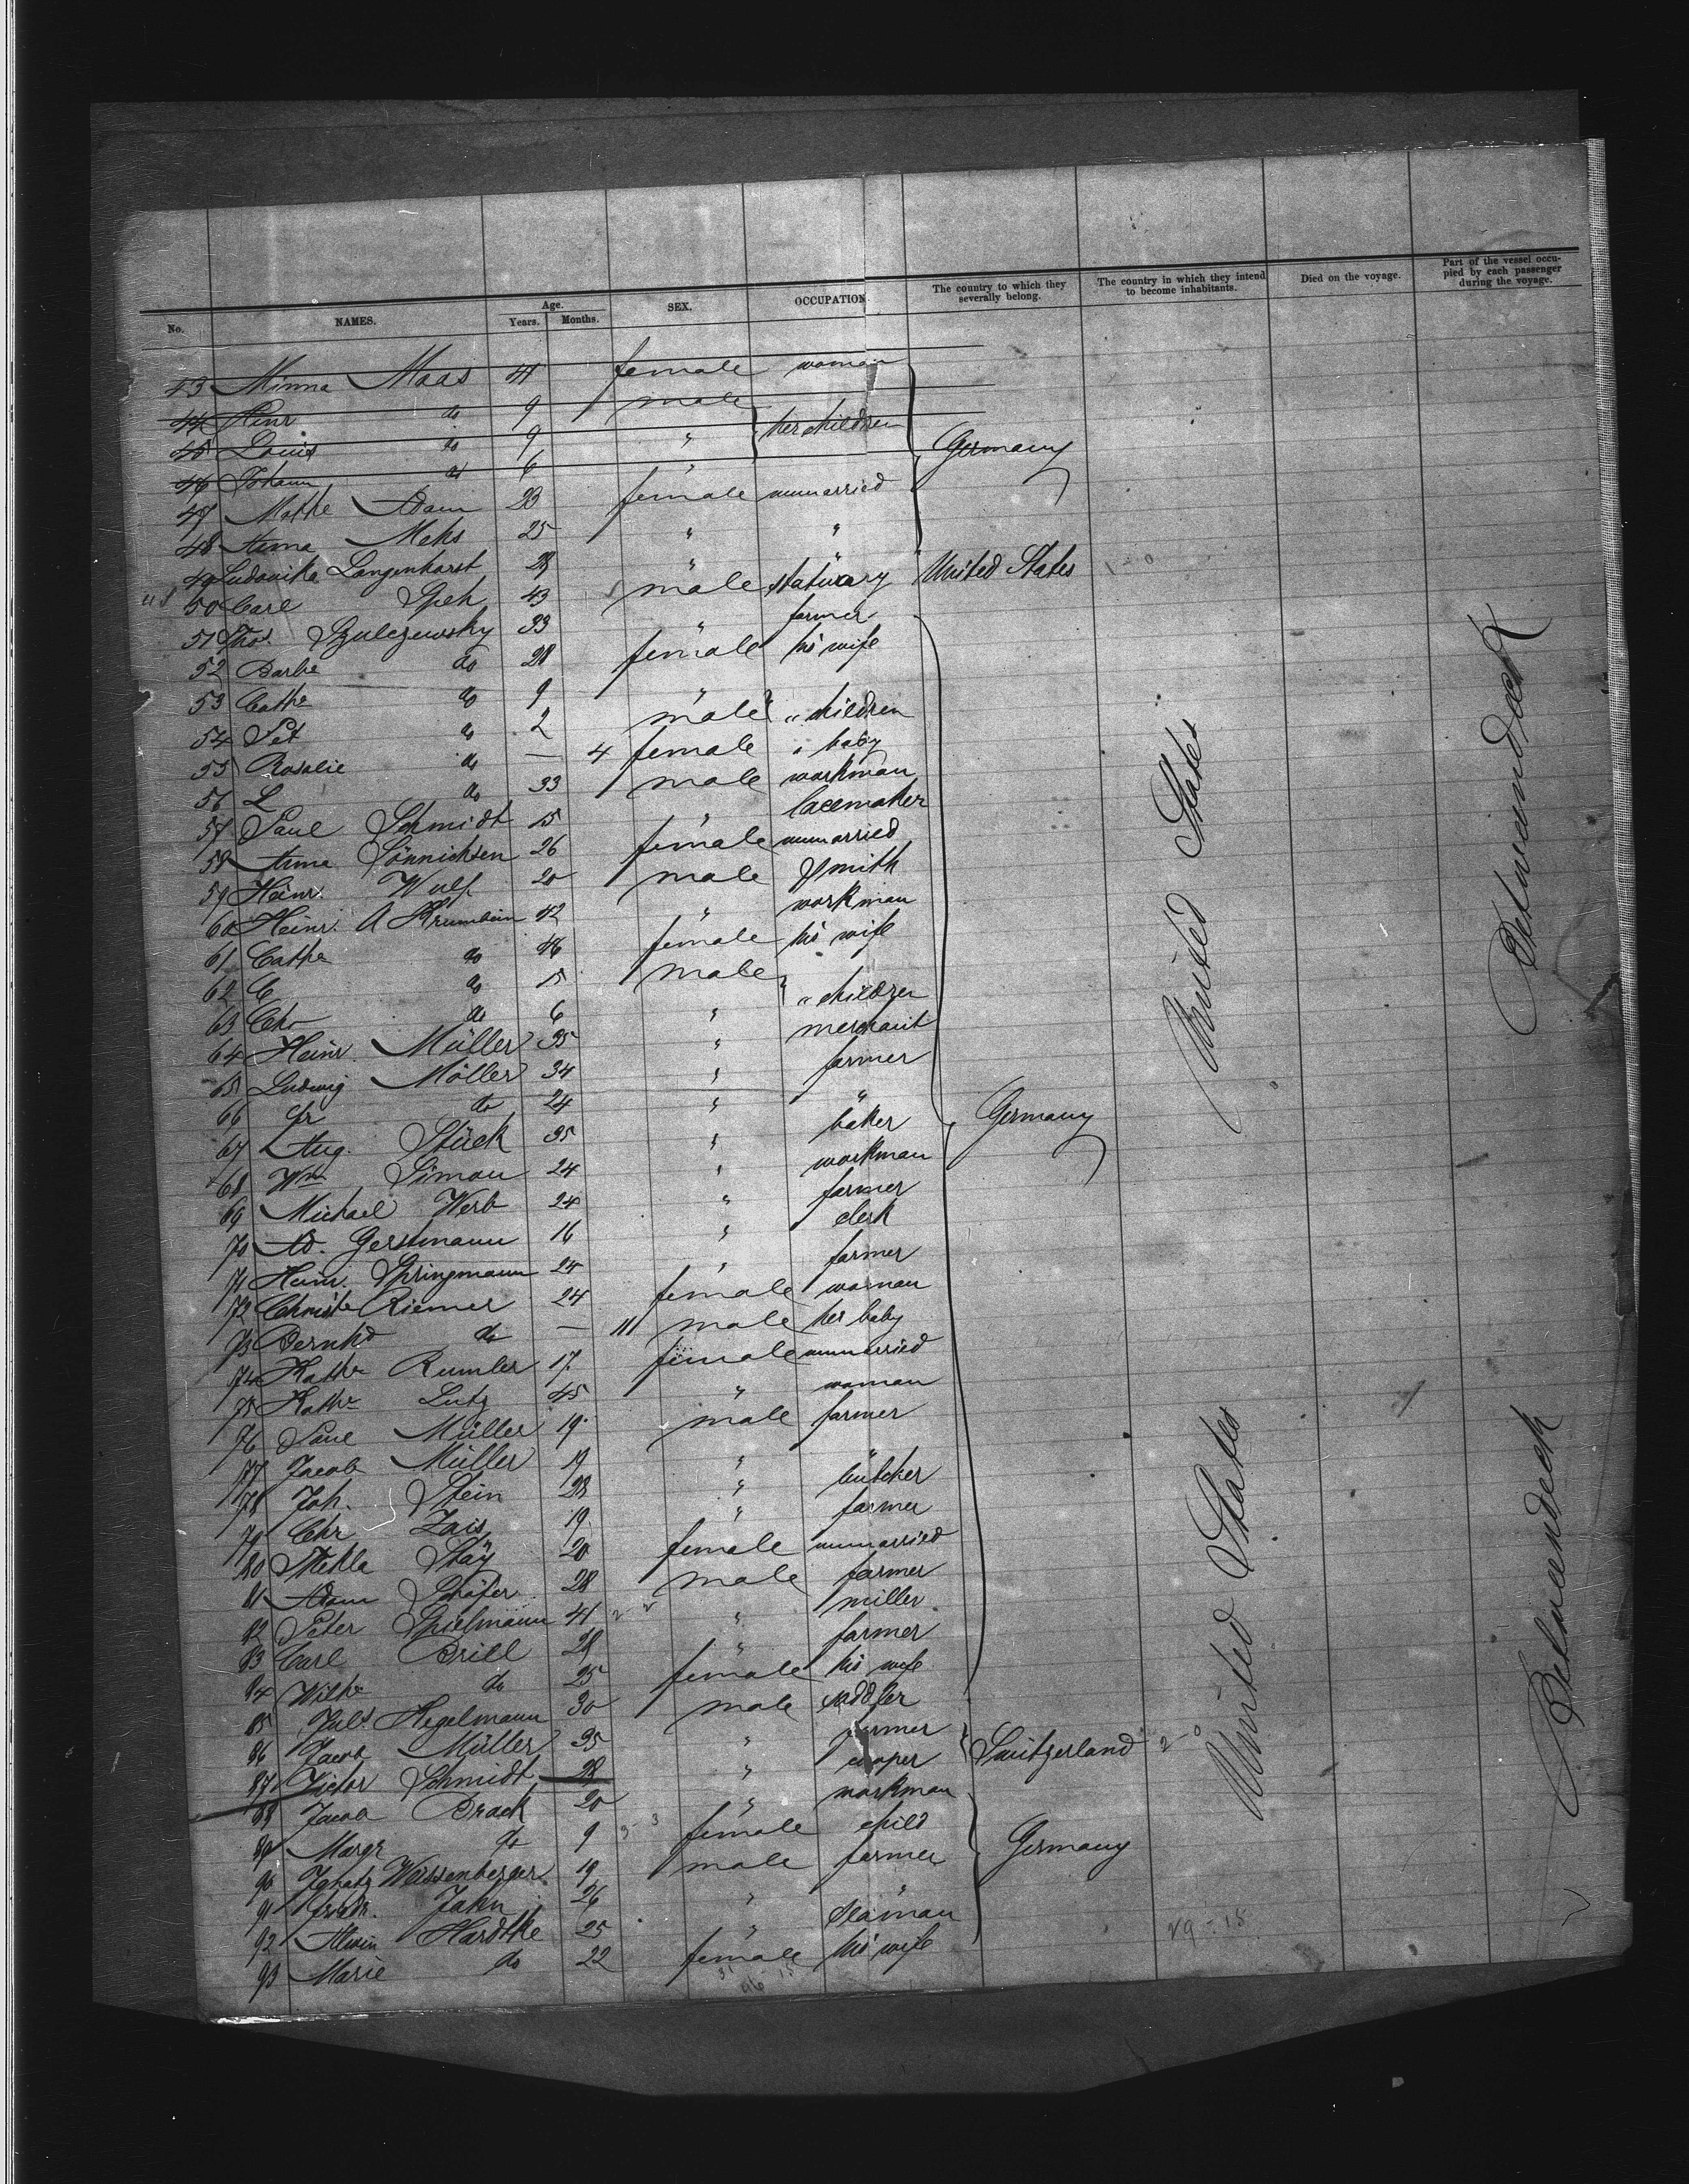 No. NAMES. Age. Years. Months. SEX. OCCUPATION. The country to which they severally belong. The country in which they intend to become inhabitants. Died on the voyage. Part of the vessel occupied by each passenger during the voyage.
43 Minna Maas 41 female woman
44 Heinr do 9 male
45 Louis do 9 " her children
46 Johann do 6 " Germany
47 Mathe Adam 23 female unmarried
48 Anna Mehs 25 " "
49 Ludovika Langenhorst 28 " "
50 Carl Speh 43 male statuary United States
51 Thos. Szulczewsky 33 " farmer
52 Barbe do 28 female his wife
53 Cathe do 9 "
54 Pet do 2 male " children
55 Rosalie do — 4 female " baby
56 L do 33 male workman
57 Paul Schmidt 15 " lacemaker
58 Anna Sönnichsen 26 female unmarried
59 Heinr. Wulf 20 male Smith
60 Heinr. A Krumbein 42 " workman
61 Cathe do 46 female his wife
62 C do 15 male
63 Chr do 6 " " children
64 Heinr. Müller 35 " merchant
65 Ludwig Möller 34 " farmer
66 Fr do 24 " "
67 Aug. Stück 35 " baker Germany
68 Wm Simon 24 " workman
69 Michael Werb 24 " farmer
70 Ad. Gerstmann 16 " clerk
71 Heinr. Springmann 24 " farmer
72 Christe Riemer 24 female woman
73 Bernhd do — 11 male her baby
74 Kathe Rumler 17 female unmarried
75 Kathe Lutz 45 " woman
76 Paul Müller 19 male farmer
77 Jacob Müller 19 " "
78 Joh. Stein 28 " butcher
79 Chr Zais 19 " farmer
80 Thekla Stäy 20 female unmarried
81 Adam Schäfer 28 male farmer
82 Peter Spielmann 41 " miller
83 Carl Brill 28 " farmer
84 Wilhe do 25 female his wife
85 Juls Hegelmann 30 male saddler
86 Jacob Müller 35 " farmer Switzerland
87 Victor Schmidt 28 " cooper
88 Jacob Brack 20 " workman
89 Margr do 9 female child Germany
90 Ignatz Weissenberger 19 male farmer
91 Friedr. Jahn 26 " "
92 Alwin Hardtke 25 " seaman
93 Marie do 22 female his wife
United States
United States
Betweendeck
Betweendeck